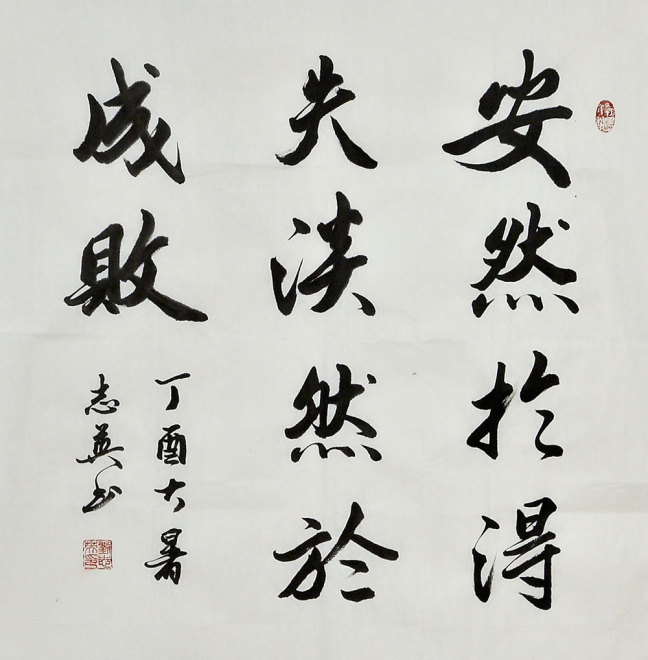 安然於得
失淡然於
成敗
丁酉大暑
志英书